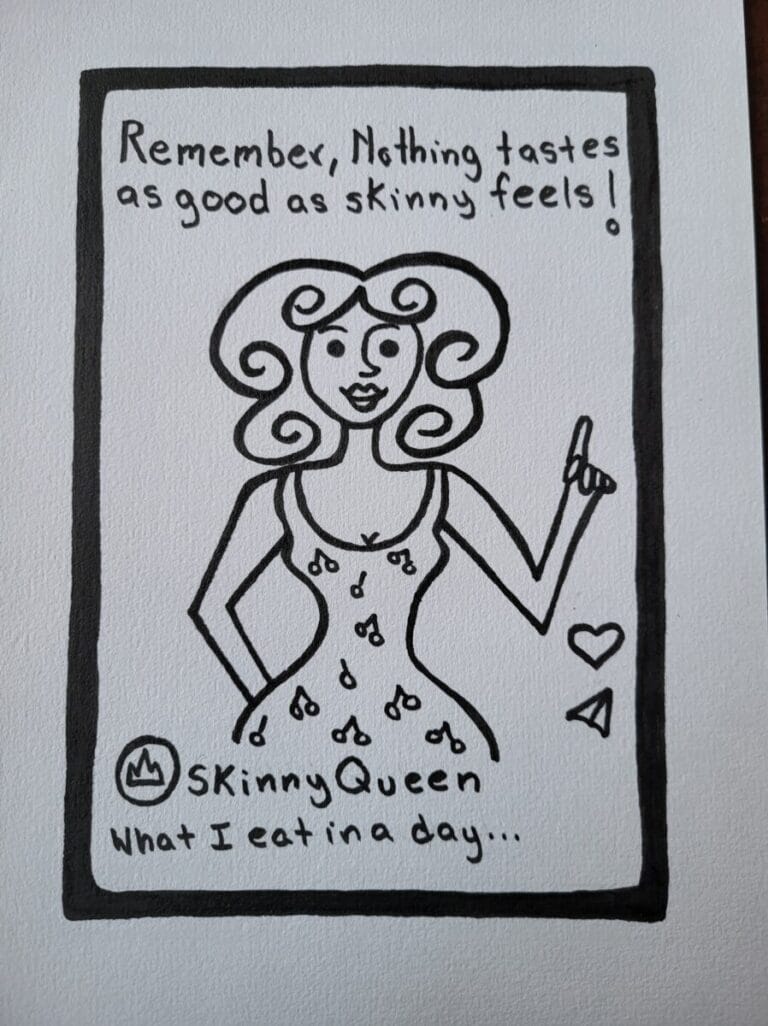 Remember, Nothing tastes
as good as skinny feels!
SKinnyQueen
What I eat in a day...